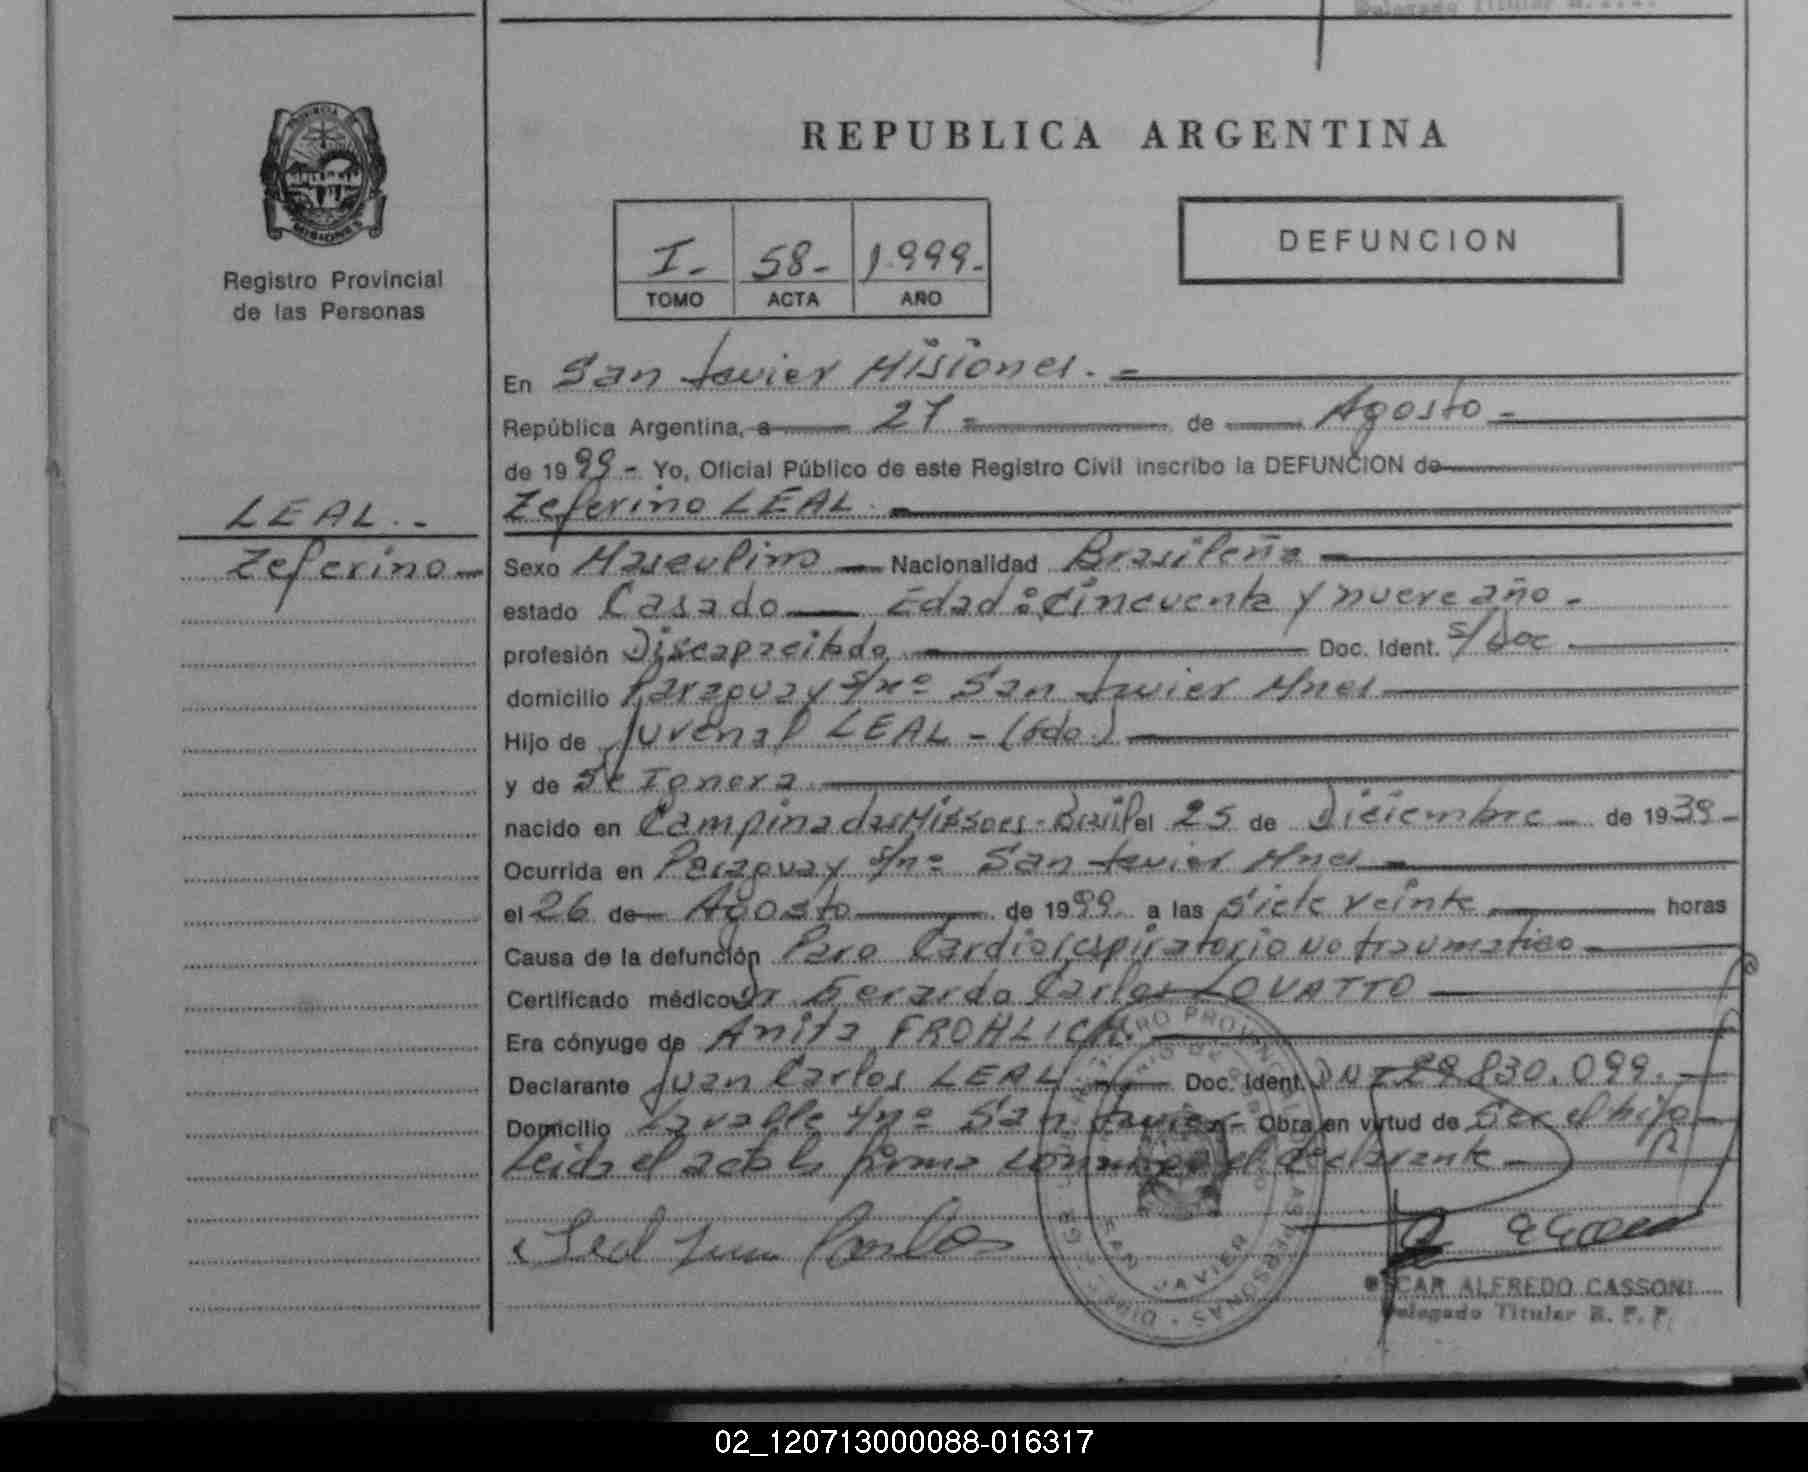 Delegado Titular R.P.P.
PROVINCIA DE MISIONES
Registro Provincial
de las Personas
REPUBLICA ARGENTINA
I.- 58- 1.999.-
TOMO ACTA AÑO
DEFUNCION
En San Javier Misiones.-
República Argentina, a 27- de Agosto-
de 1999- Yo, Oficial Público de este Registro Civil inscribo la DEFUNCION de
LEAL.-
Zeferino LEAL.
Zeferino-
Sexo Masculino Nacionalidad Brasileña
estado Casado Edad: Cincuenta y nueve año-
profesión Discapacitado Doc. Ident. s/doc
domicilio Paraguay s/nº San Javier Mnes
Hijo de Juvenal LEAL-(fdo.)
y de Se Ignora
nacido en Campina das Missoes-Brasil el 25 de Diciembre de 1939-
Ocurrida en Paraguay s/nº San Javier Mnes
el 26 de Agosto de 1999 a las Siete veinte horas
Causa de la defunción Paro Cardiorespiratorio no traumatico
Certificado médico Dr Gerardo Carlos LOVATTO
Era cónyuge de Anita FROHLICH.
Declarante Juan Carlos LEAL Doc. Ident. DNI 29.830.099.
Domicilio Lavalle s/nº San Javier- Obra en virtud de Ser el hijo
Leida el acta la firma conmigo el declarante
Leal Juan Carlos
SAN JAVIER
OSCAR ALFREDO CASSONI
Delegado Titular R.P.P.
02_120713000088-016317